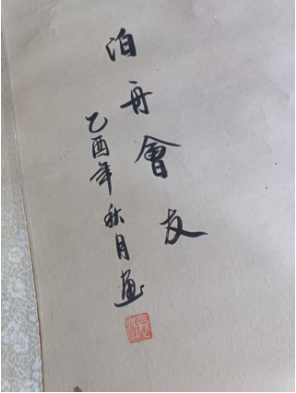 泊舟會友
乙酉年秋月畫